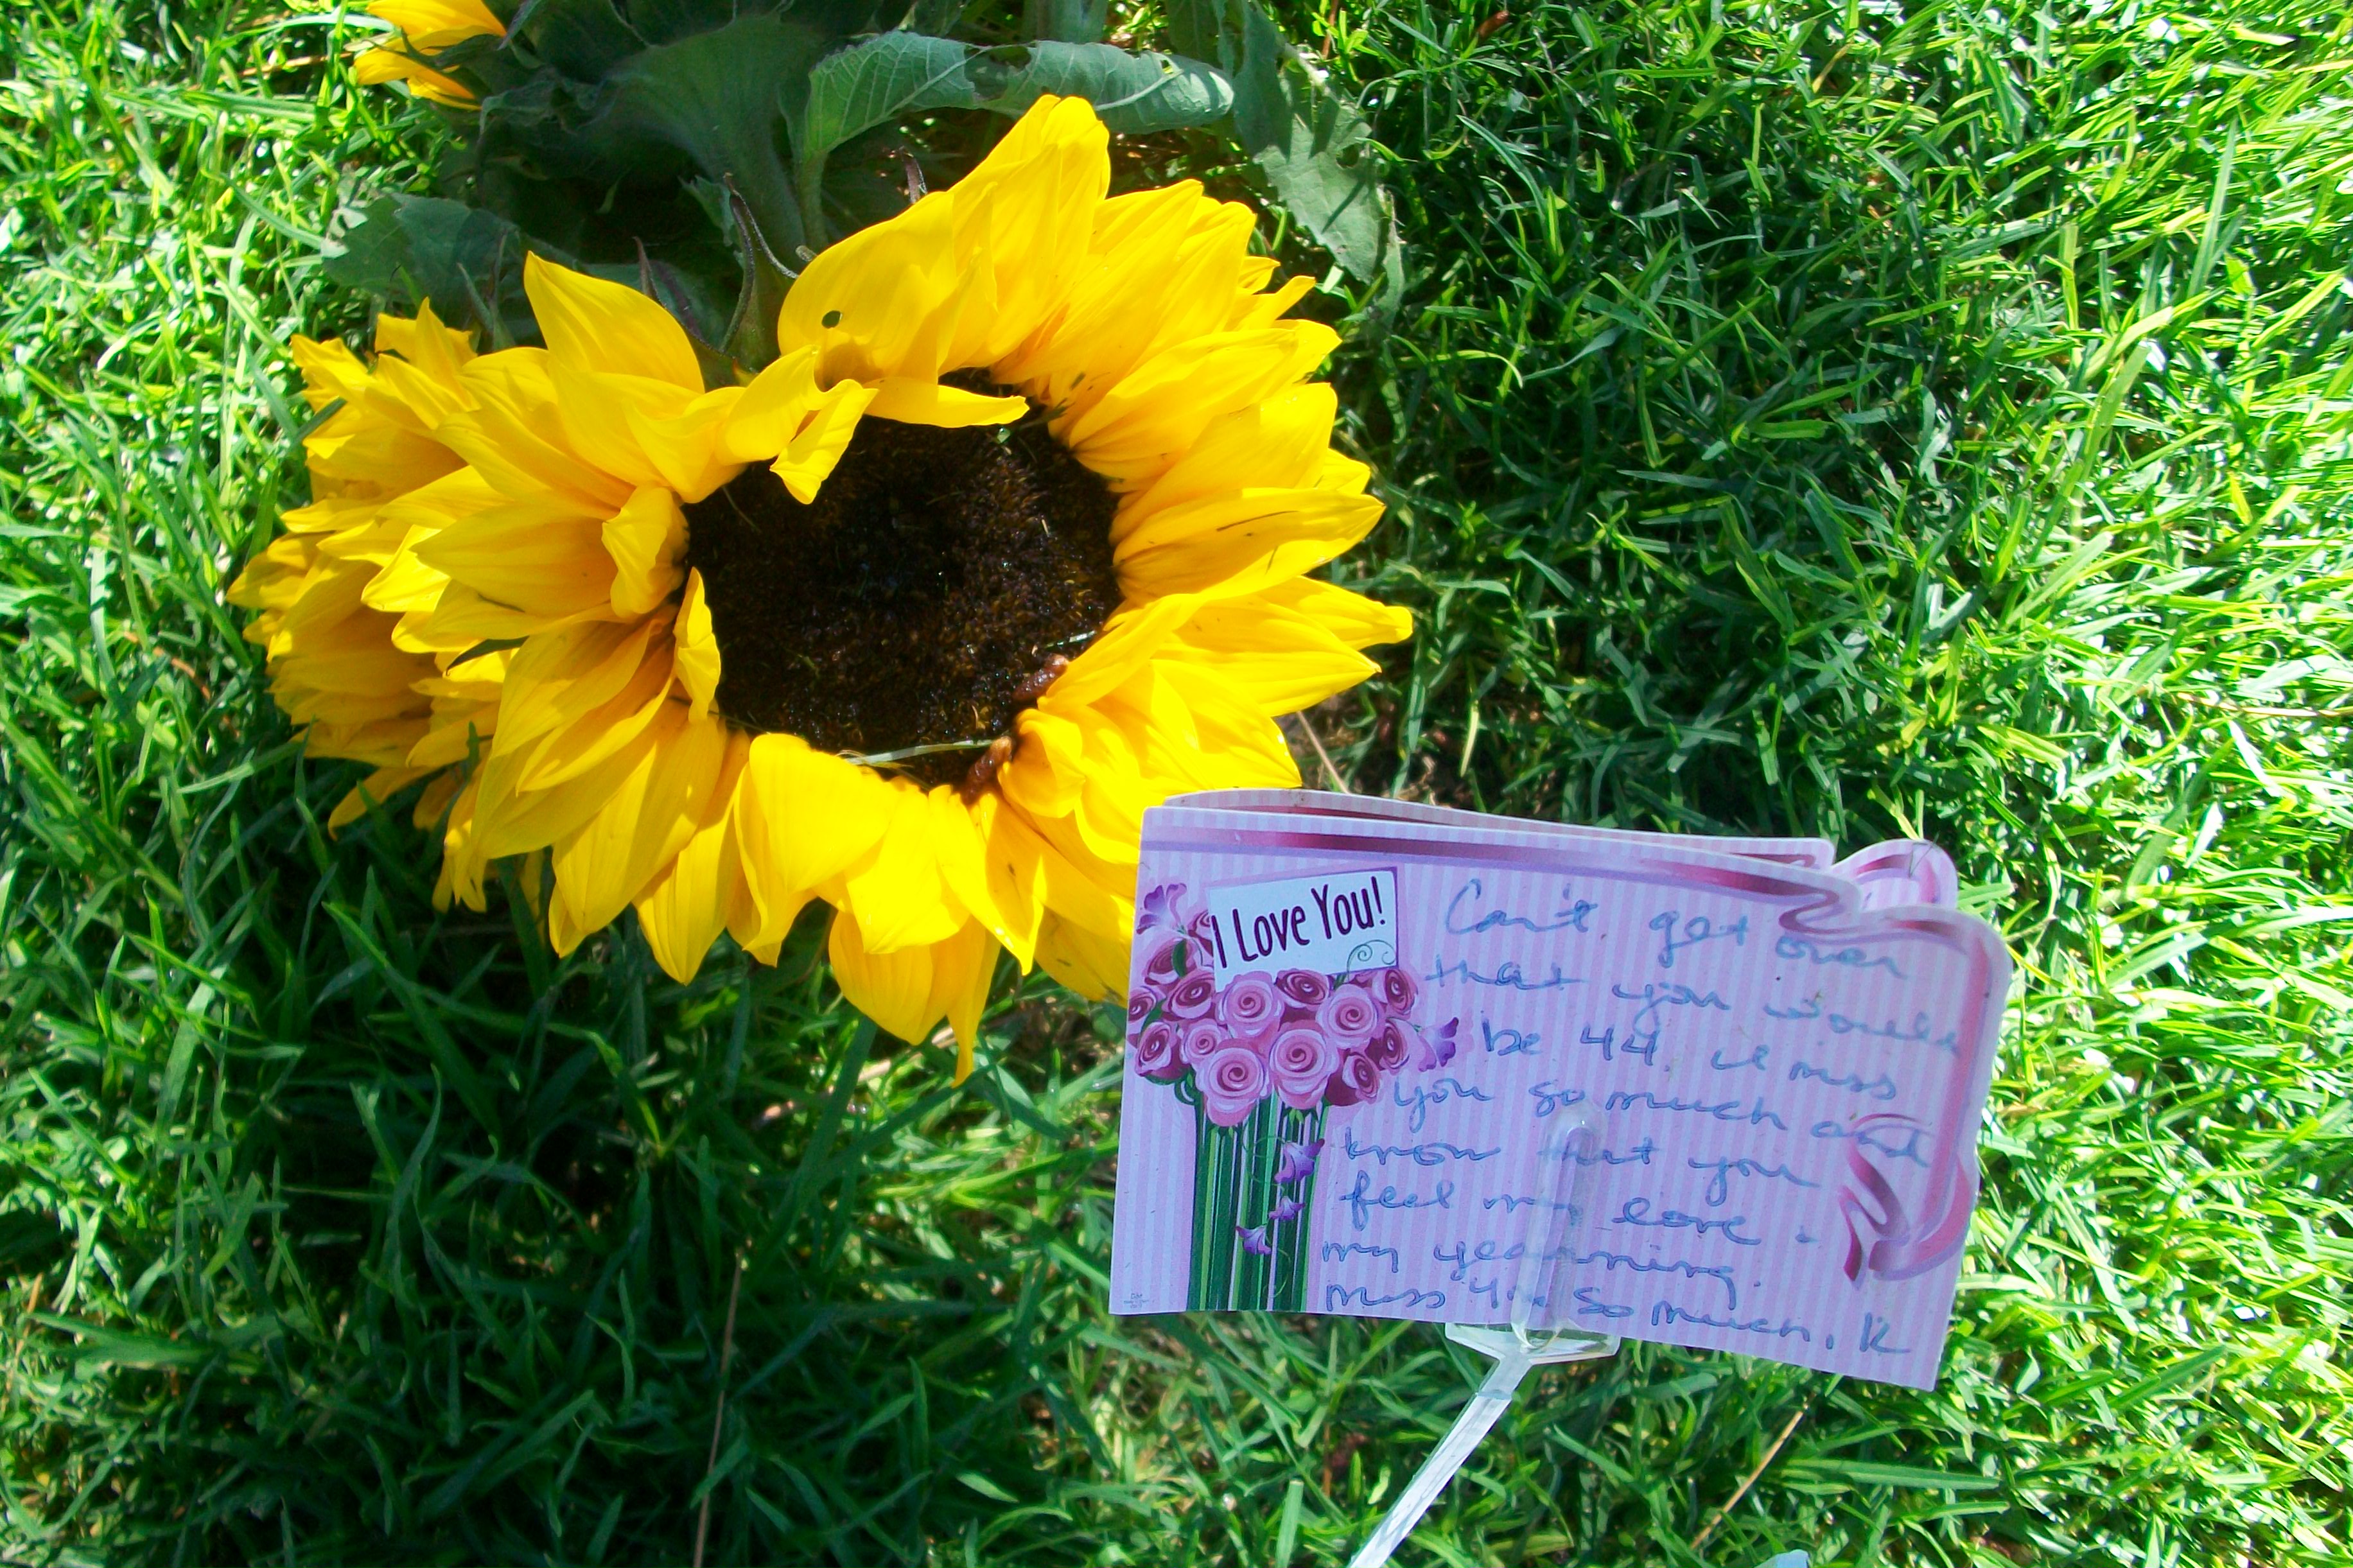 I Love You!
Can't get over
that you would
be 44. I miss
you so much and
know that you
feel my love -
my yearning.
miss you so much, K